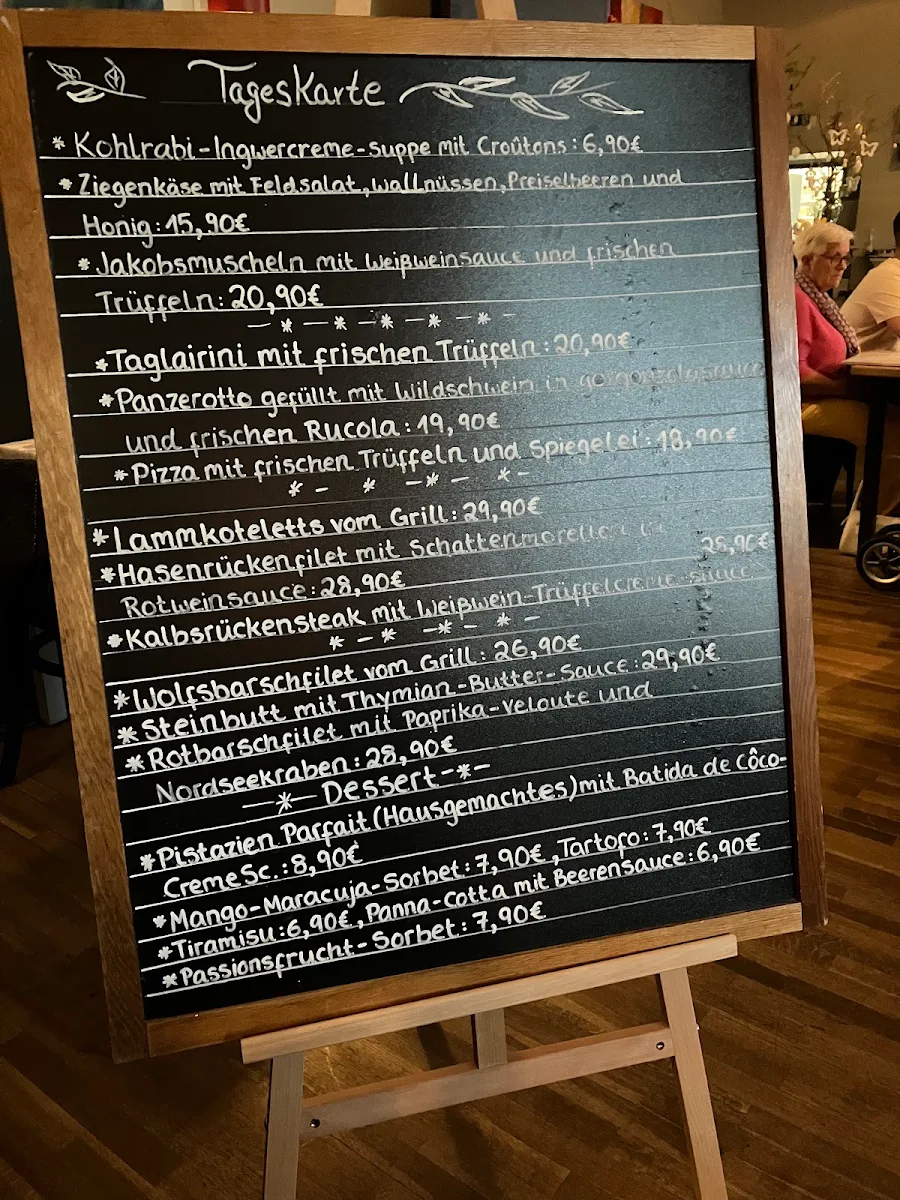 Tageskarte
* Kohlrabi-Ingwercreme-suppe mit Croûtons: 6,90€
* Ziegenkäse mit Feldsalat, wallnüssen, Preiselbeeren und
Honig: 15,90€
* Jakobsmuscheln mit Weißweinsauce und frischen
Trüffeln: 20,90€
— * — * — * — * — * —
* Taglairini mit frischen Trüffeln: 20,90€
* Panzerotto gefüllt mit Wildschwein in gorgonzolasauce
und frischen Rucola: 19,90€
* Pizza mit frischen Trüffeln und Spiegelei: 18,90€
* — * — * — * —
* Lammkoteletts vom Grill: 29,90€
* Hasenrückenfilet mit Schattenmorellen in
Rotweinsauce: 28,90€
28,90€
* Kalbsrückensteak mit Weißwein-Trüffelcreme-sauce
* — * — * — * —
* Wolfsbarschfilet vom Grill: 26,90€
* Steinbutt mit Thymian-Butter-Sauce: 29,90€
* Rotbarschfilet mit Paprika-Veloute und
Nordseekraben: 28,90€
— * — Dessert — * —
* Pistazien Parfait (Hausgemachtes) mit Batida de Côco-
Creme Sc.: 8,90€
* Mango-Maracuja-Sorbet: 7,90€, Tartofo: 7,90€
* Tiramisu: 6,90€, Panna-cotta mit Beerensauce: 6,90€
* Passionsfrucht-Sorbet: 7,90€